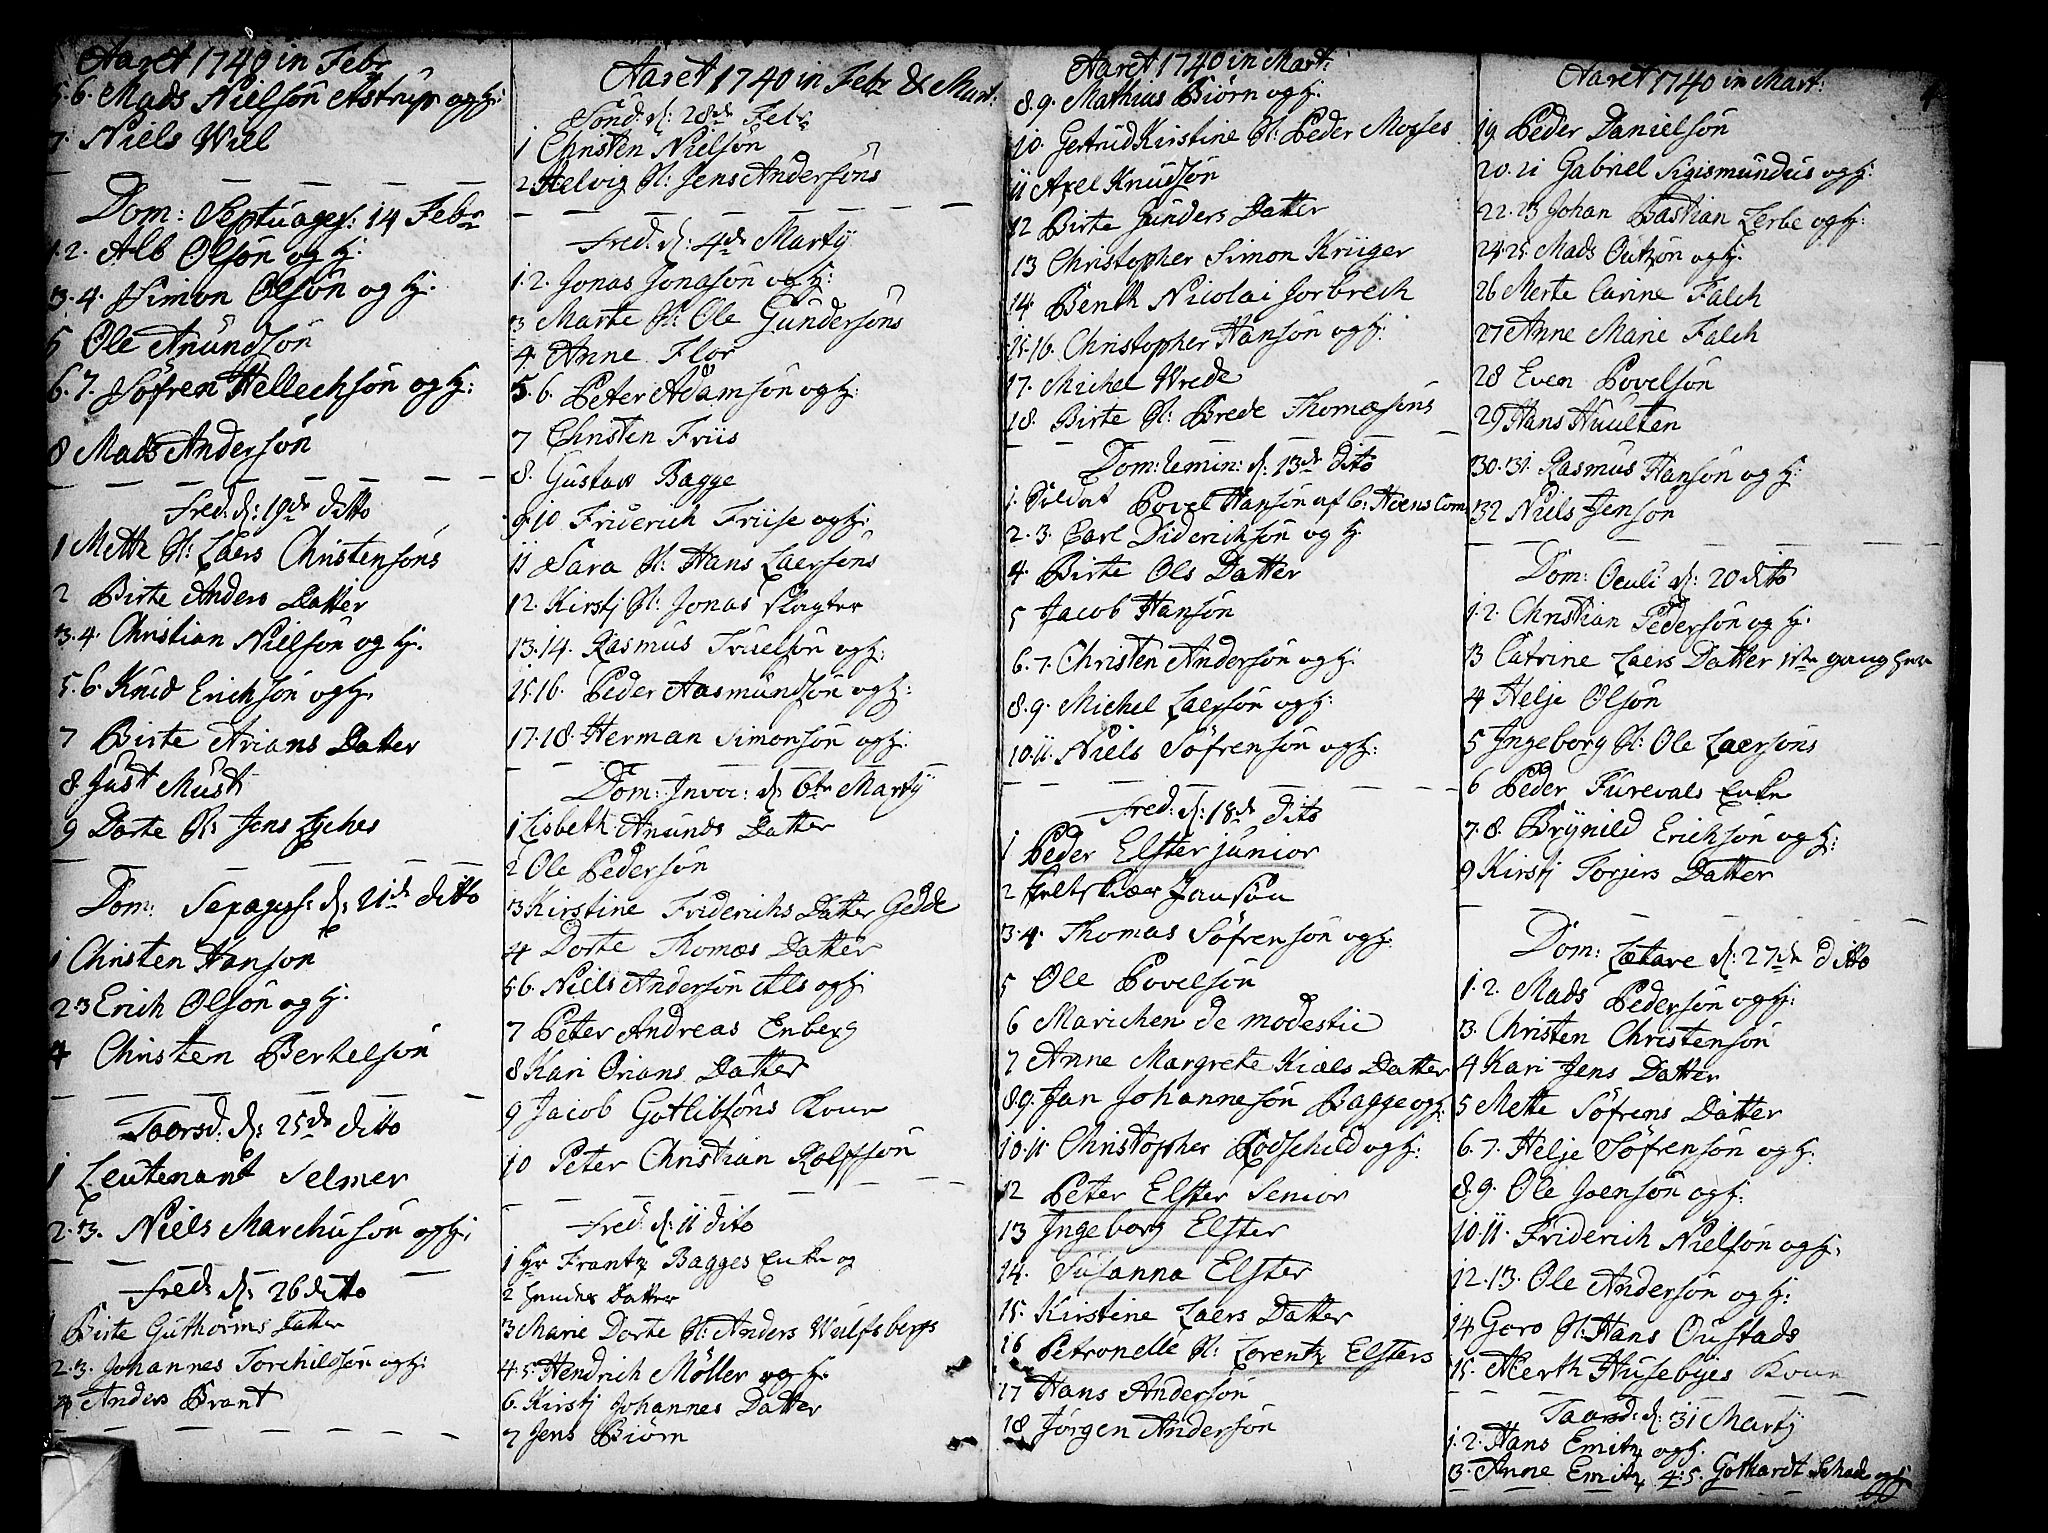 Aaret 1740 in Febr
5. 6. Mads Nielsøn Astrup og H:
7. Niels Will
Dom: Septuages: 14 Febr
1. 2. Alb Olsøn og H.
3. 4. Simon Olsøn og H.
5 Ole Anundsøn
6. 7. Søfren Hellechsøn og H:
8 Mads Andersøn
Fred: d: 19de ditto
1 Mette H: Laers Christensøns
2 Birte Anders Datter
3. 4. Christian Nielsøn og H.
5. 6. Knud Erichsøn og H.
7 Birte Arians Datter
8. Just Must
9 Dorte H: Jens Lyches
Dom: Sexages: d: 21de ditto
1 Christen Hansøn
2 3 Erich Olsøn og H.
4 Christen Bertelsøn
Taarsd: d: 25de ditto
1 Leutenant Selmer
2. 3. Niels Marchusøn og H.
Fred: d: 26 ditto
1 Birte Guthorms Datter
2. 3. Johannes Torchildsøn og H:
4 Anders Brant
Aaret 1740 in Febr & Mart:
Sønd: d: 28de Febr
1 Christen Nielsøn
2. Helvig H: Jens Andersøns
Fred: d: 4de Martij
1. 2. Jonas Jonasøn og H:
3 Marte H: Ole Gundersøns
4. Anne Flor
5. 6. Peter Adamsøn og H:
7 Christen Friis
8. Gustav Bagge
9. 10 Friderich Friise og H:
11 Sara H: Hans Laersøns
12. Kirstj H: Jonas Slagter
13. 14. Rasmus Truelsøn og H:
15 16. Peder Aasmundsøn og H:
17. 18. Herman Simonsøn og H:
Dom: Invoc: d: 6te Martij
1 Lisbeth Anunds Datter
2 Ole Pedersøn
3 Kirstine Friderichs Datter Gedde
4 Dorte Thomæs Datter
5 6. Niels Andersøn Als og H
7 Peter Andreas Enberg
8 Kari Orians Datter
9 Jacob Gotlibsøns Kone
10 Peter Christian Rolfsøn
Fred: d: 11 dito
1 Hr Frantz Bagges Enke og
2 hendes Datter
3 Marie Dorte H: Anders Wulfsbergs
4. 5. Hendrich Møller og H.
6. Kirstj Johannes Datter
7 Jens Biørn
Aaret 1740 in Mart:
8. 9. Mathias Biørn og H.
10. Gertrud Kirstine H: Peder Moses
11 Axel Knudsøn
12 Birte Gunders Datter
13 Christopher Simon Krüger
14 Benth Nicolai Jorbrech
15. 16. Christopher Hansøn og H:
17. Michel Wrede
18. Birte H: Brede Thomæsøns
Dom: Remin: d: 13de dito
1. Soldat Povel Hansøn af C: Heens Com
2. 3. Carl Diderichsøn og H
4. Birte Ols Datter
5 Jacob Hansøn
6. 7. Christen Andersøn og H.
8. 9. Michel Laersøn og H:
10. 11. Niels Søfrensøn og H:
Fred: d: 18de dito
1 Peder Elster junior
2 Feltskiær Jansøn
3. 4. Thomas Søfrensøn og H.
5 Ole Povelsøn
6 Marichen de modestie
7 Anne Margrete Kiæls Datter
8. 9. Jan Johannesøn Bagge og H:
10. 11 Christopher Rodschild og H:
12 Peter Elster Senior
13 Ingeborg Elster
14. Susanna Elster
15. Kirstine Laers Datter
16 Petronelle H: Lorentz Elsters
17 Hans Andersøn
18 Jørgen Andersøn
Aaret 1740 in Mart:
19 Peder Danielsøn
20. 21 Gabriel Sigismundus og H:
22. 23 Johan Bastian Lerbe og H:
24. 25. Mads Outzøn og H.
26 Merte Carine Falch
27 Anne Marie Falch
28 Even Povelsøn
29 Hans Huulten
30. 31. Rasmus Hansøn og H:
32 Niels Jensøn
Dom: Oculi d: 20 dito
1. 2. Christian Pedersøn og H.
3 Catrine Laers Datter 1ste gang her
4 Helje Olsøn
5 Ingeborg H: Ole Laersøns
6 Peder Furevals Enke
7. 8. Brynild Erichsøn og H:
9 Kirstj Torjers Datter
Dom: Lætare d: 27de ditto
1. 2. Mads Pedersøn og H:
3. Christen Christensøn
4 Kari Jens Datter
5 Mette Søfrens Datter
6. 7. Helje Søfrensøn og H.
8. 9. Ole Joensøn og H.
10. 11. Friderich Nielsøn og H.
12. 13. Ole Andersøn og H:
14 Goro H: Hans Oustads
15. Alerth Husebyes Kone
Taarsd: d: 31 Martij
1. 2. Hans Emitz og H.
3. Anne Emitz 4. 5. Gothardt Schade og H